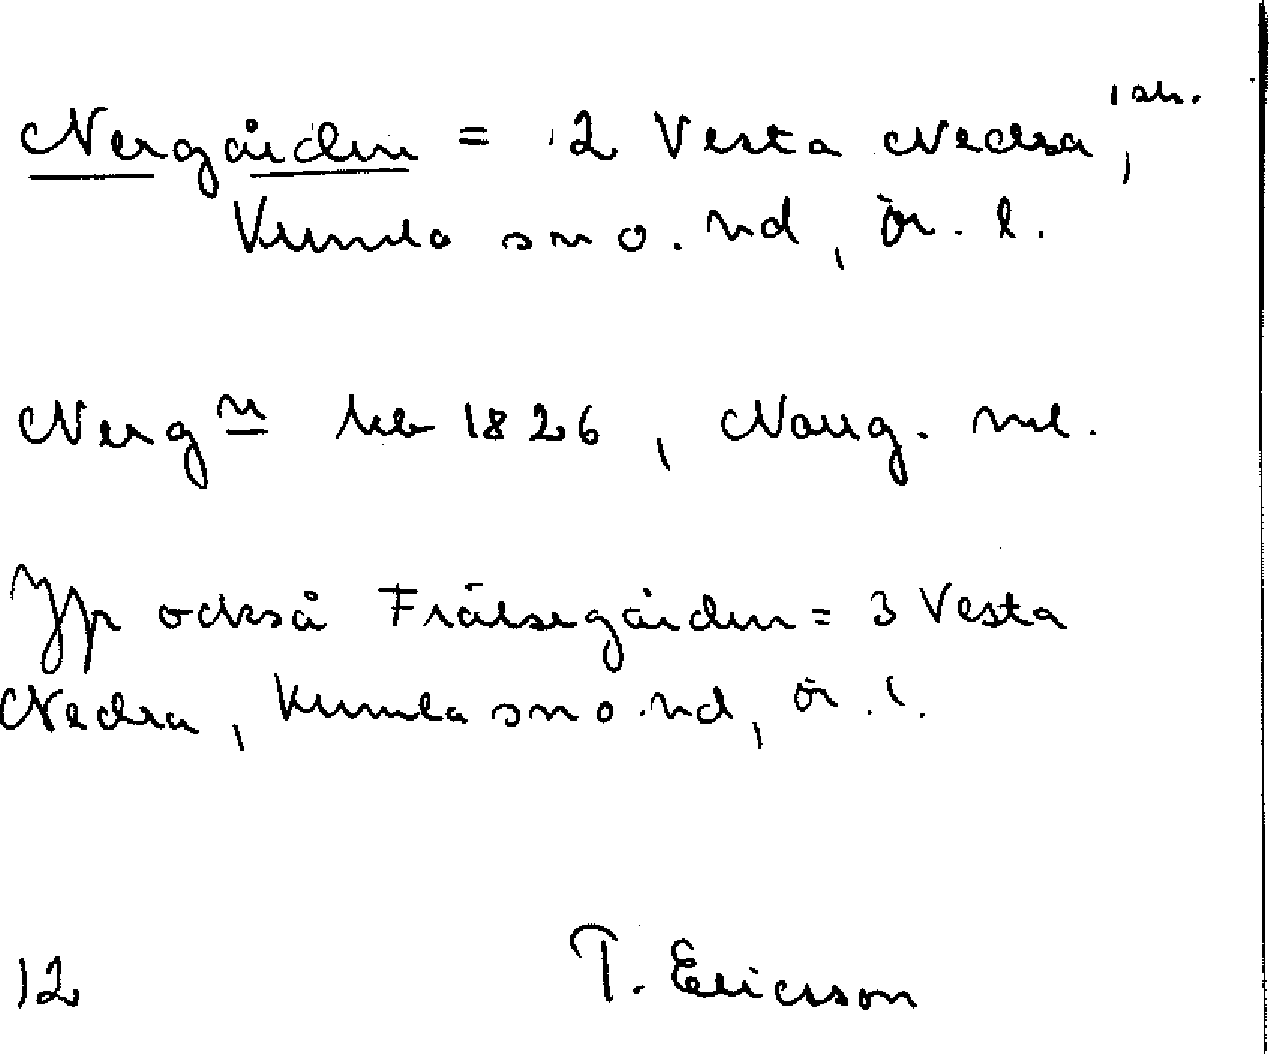 Nergården = 2 Vesta Nedra, 1 sk.
Kumla sn o. hd, Ör. l.
Nergn hb 1826, Naug. ml.
Jfr också Frälsegården = 3 Vesta
Nedra, Kumla sn o. hd, ör. l.
12 T. Ericsson